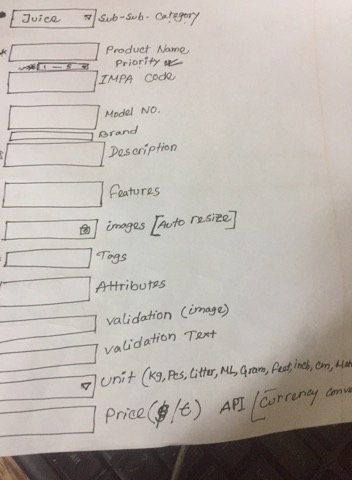 Juice Sub-Sub-Category
Product Name
1 - 5 Priority
IMPA Code
Model NO.
Brand
Description
features
images [Auto resize]
Tags
Attributes
validation (image)
validation Text
unit (Kg, Pcs, Litter, ML, Gram, feet, inch, cm,
Price ($/€) API [Currency conve